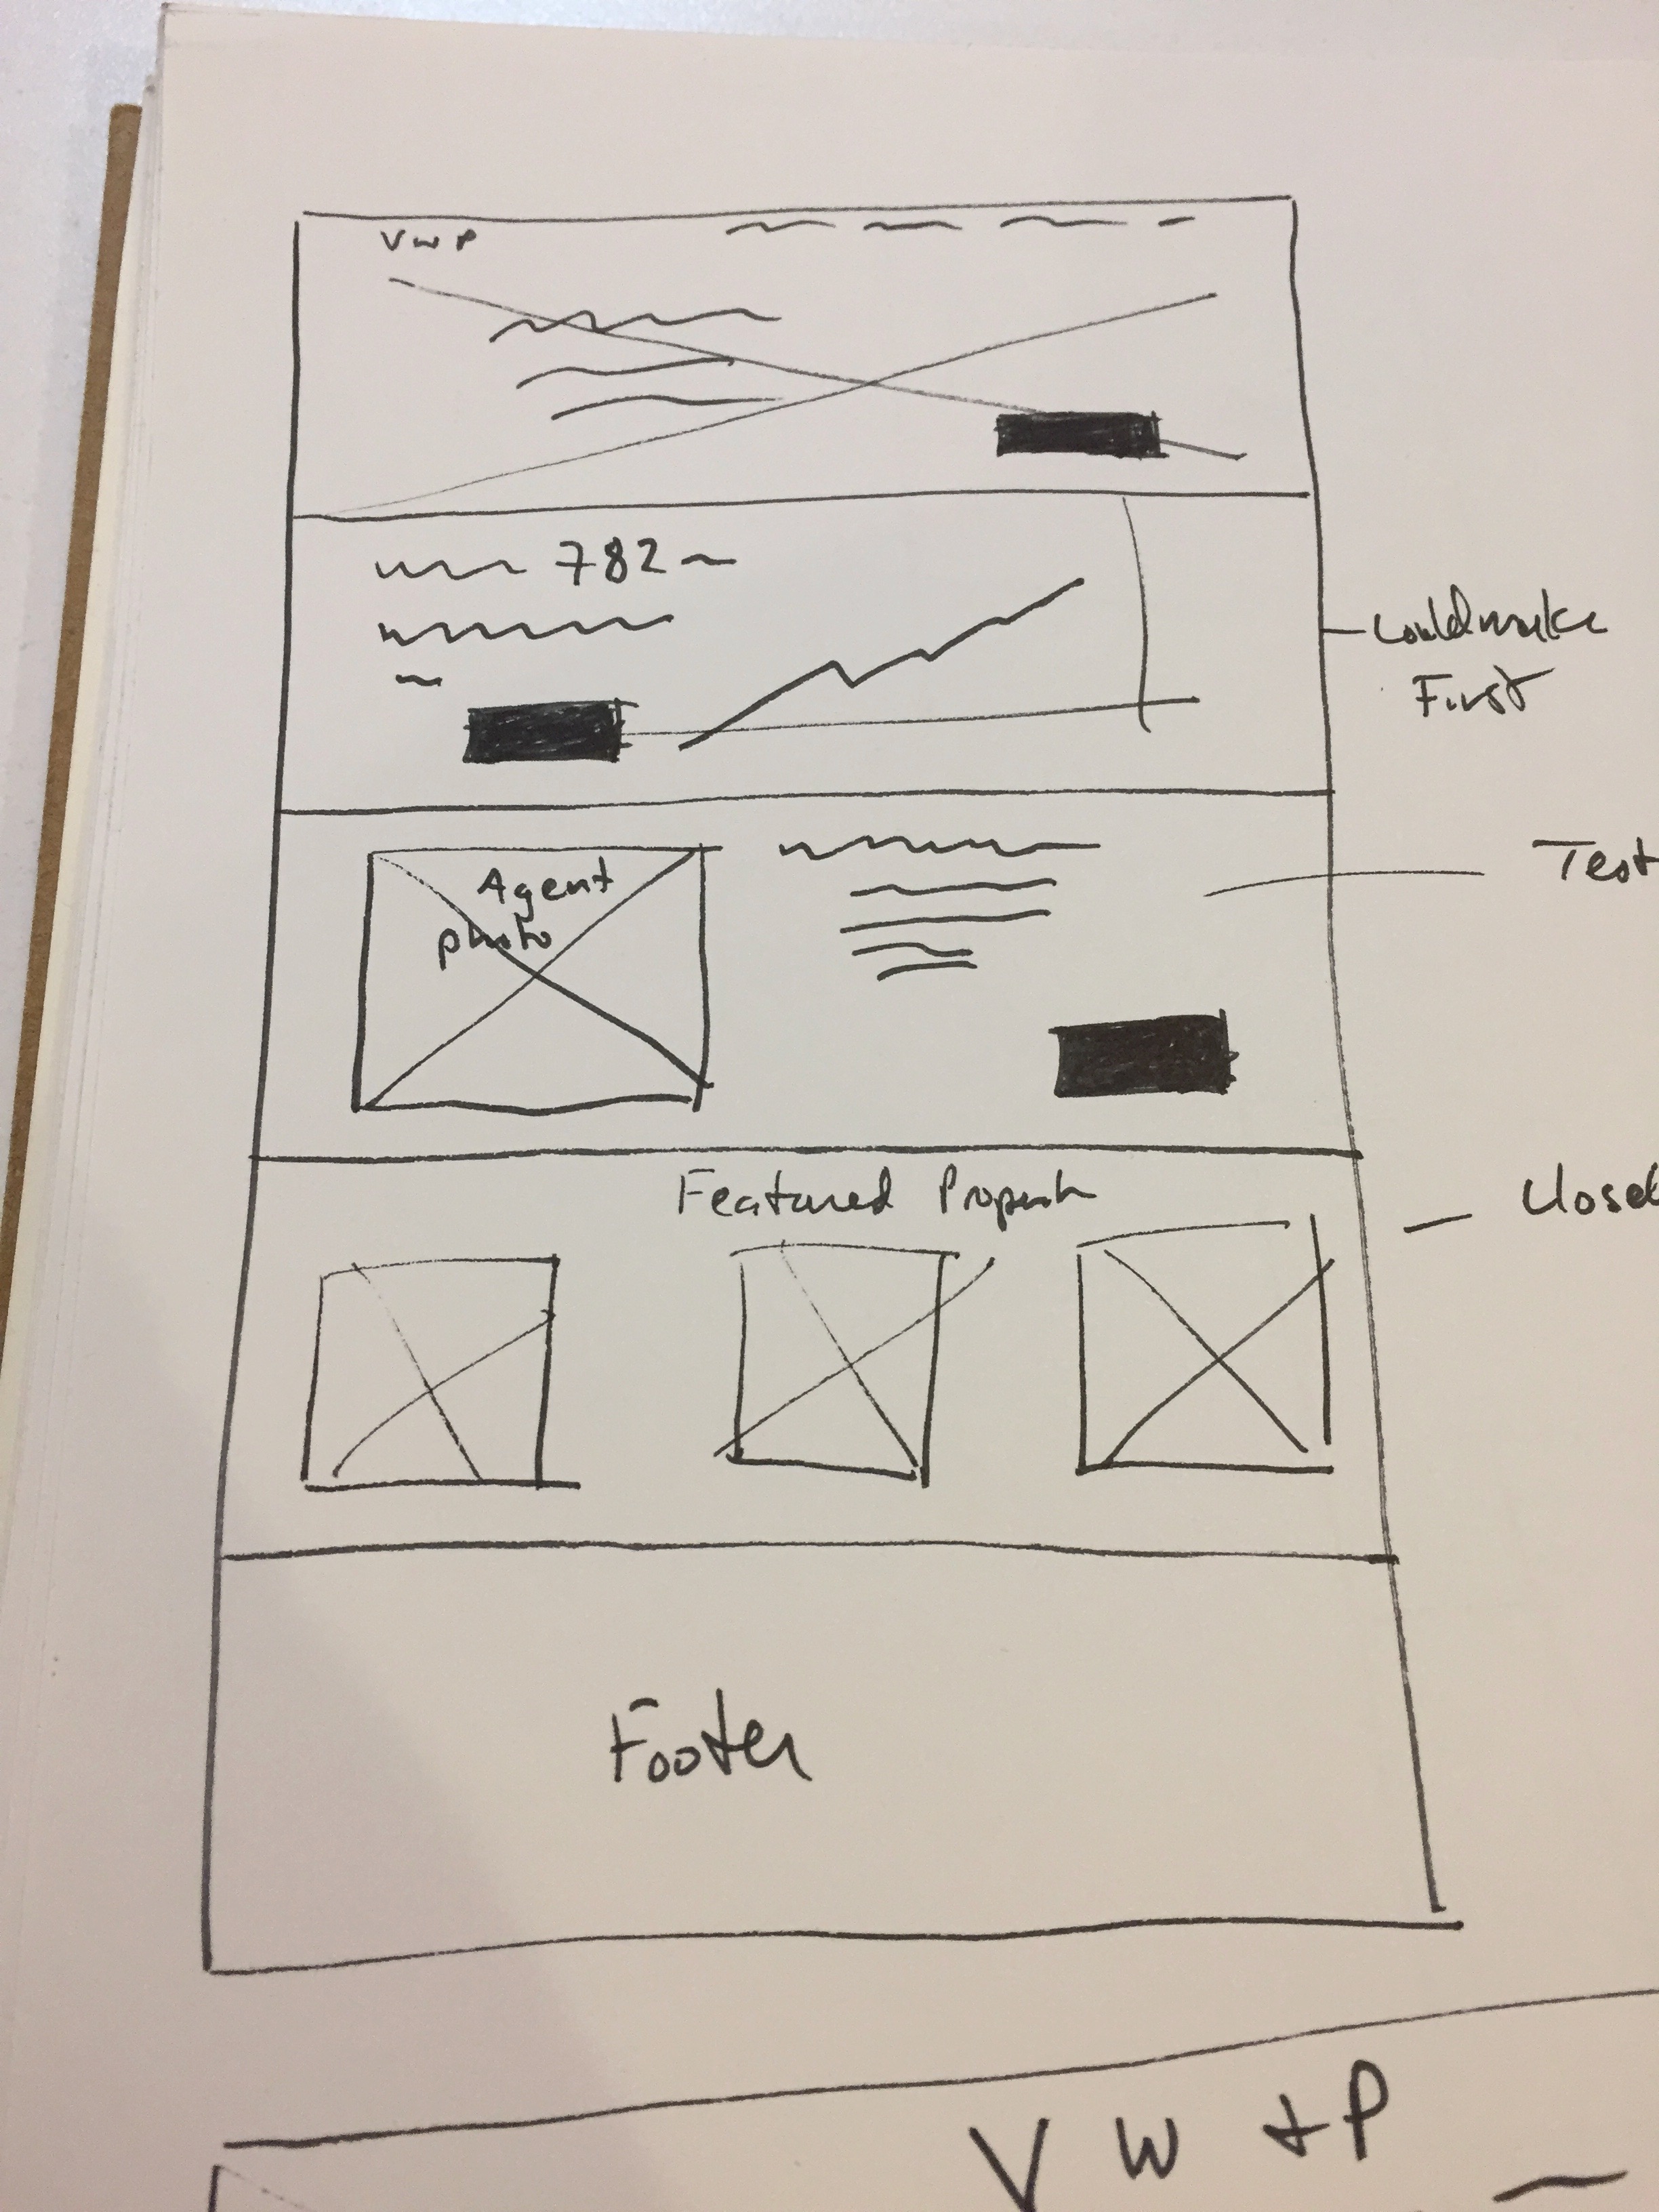 VWP
782
Could make
First
Agent
photo
Test
Featured
Closed
Footer
VW+P